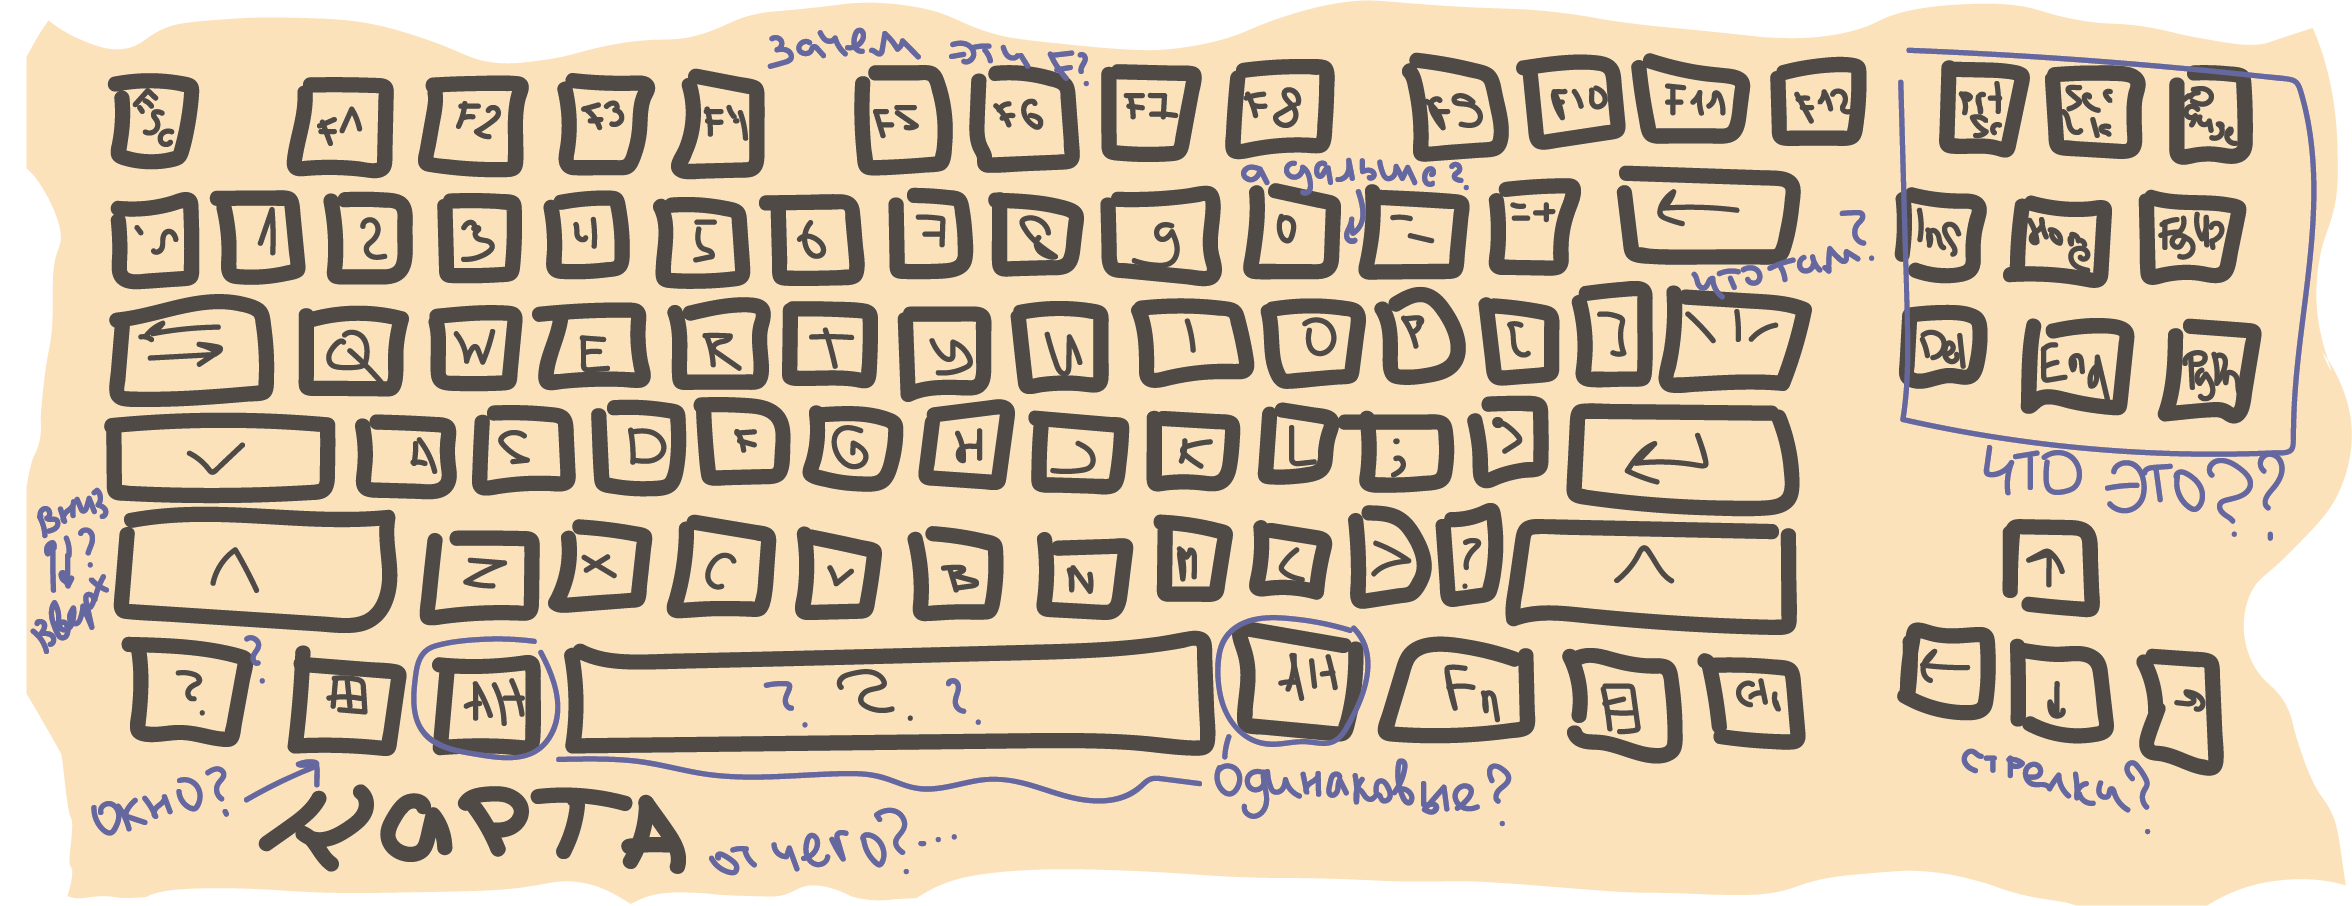 зачем эти F?
Esc F1 F2 F3 F4 F5 F6 F7 F8 F9 F10 F11 F12 Prt Sc Scr Lk Pause
а дальше?
`~ 1 2 3 4 5 6 7 8 9 0 - =+ ← Ins Home PgUp
что там?
Q W E R T Y U I O P [ ] \ | / Del End PgDn
A S D F G H J K L ; > ←
что это??
вниз
?
вверх
Z X C V B N M < > ? ^ ↑
? ? Alt ? ? ? Alt Fn Ctrl ← ↓ →
окно?
Одинаковые?
стрелки?
КАРТА
от чего?...